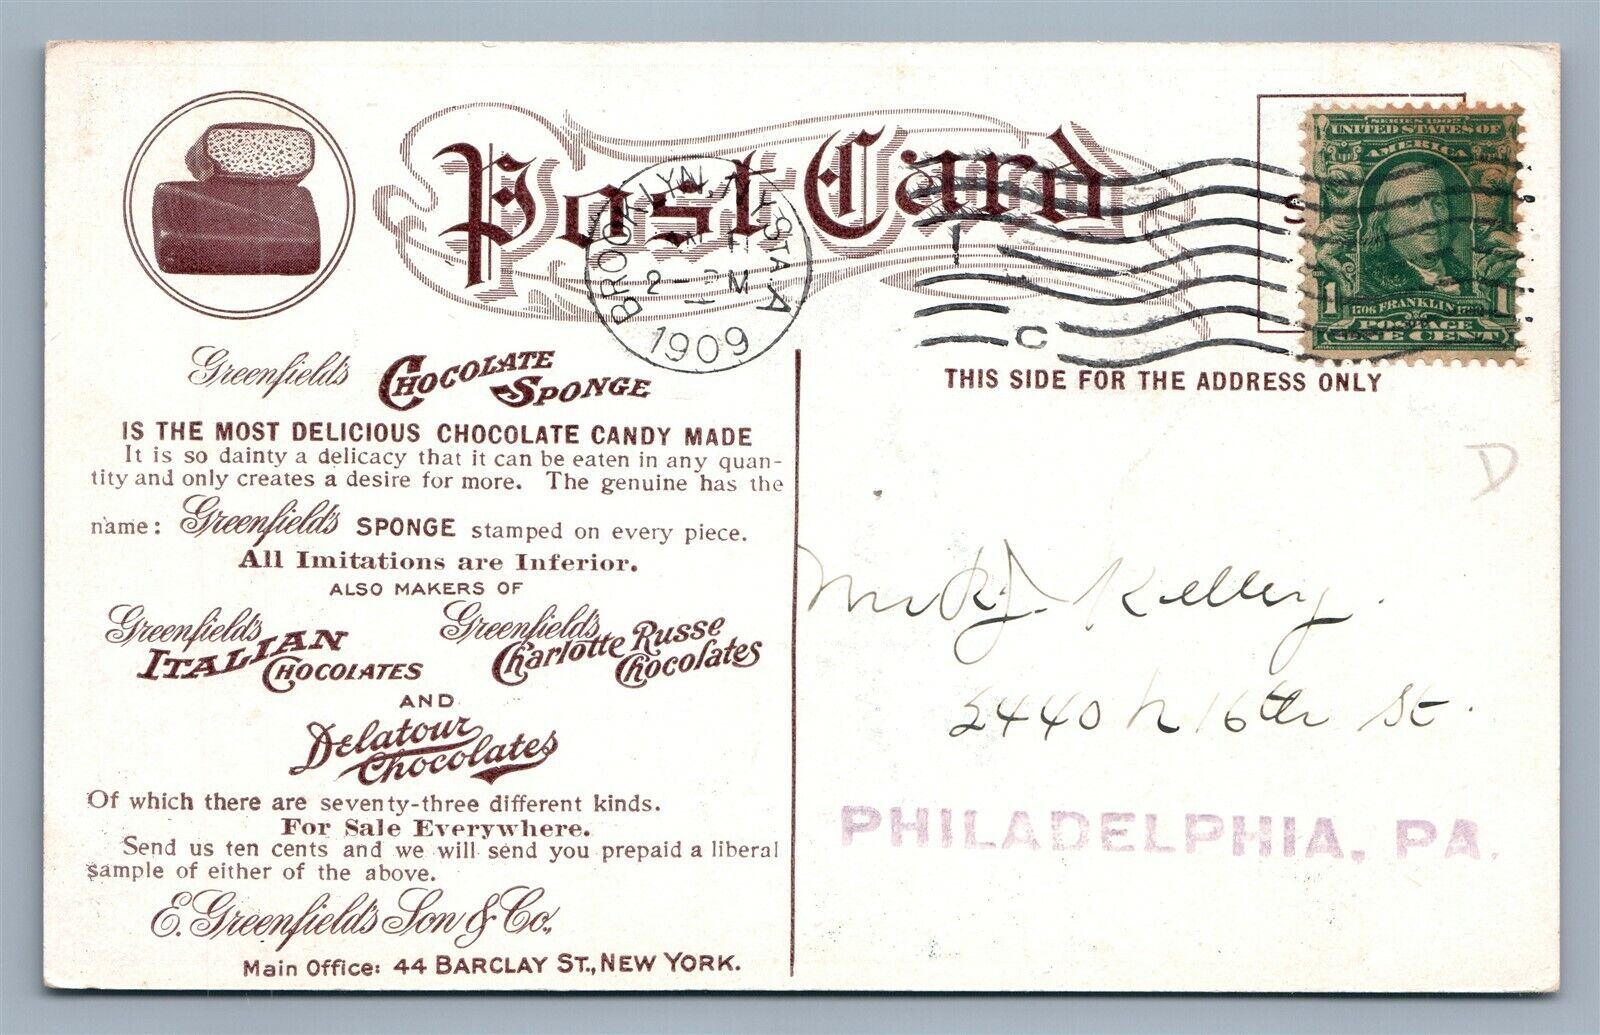 Post Card
BROOKLYN, N.Y. STA. A
2 - PM
1909
C
SERIES 1902
UNITED STATES OF
AMERICA
1 FRANKLIN 1
1706 1790
POSTAGE
ONE CENT
THIS SIDE FOR THE ADDRESS ONLY
D
Greenfield's CHOCOLATE SPONGE
IS THE MOST DELICIOUS CHOCOLATE CANDY MADE
It is so dainty a delicacy that it can be eaten in any quan-
tity and only creates a desire for more. The genuine has the
name: Greenfield's SPONGE stamped on every piece.
All Imitations are Inferior.
ALSO MAKERS OF
Greenfield's ITALIAN CHOCOLATES
Greenfield's Charlotte Russe Chocolates
AND
Delatour Chocolates
Of which there are seventy-three different kinds.
For Sale Everywhere.
Send us ten cents and we will send you prepaid a liberal
sample of either of the above.
E. Greenfield's Son & Co.,
Main Office: 44 BARCLAY ST., NEW YORK.
Kelley.
2440 N 16th St.
PHILADELPHIA, PA.